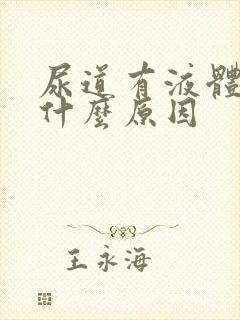 尿道有液體
什麼原因
王永海